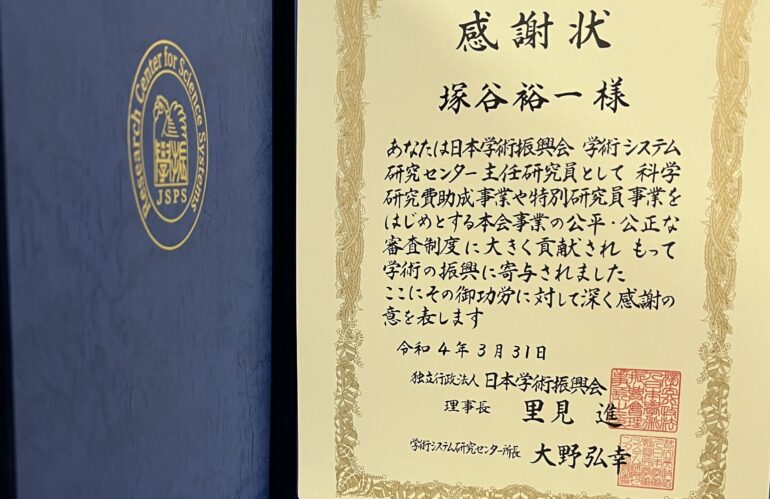 Research Center for Science Systems
JSPS
感謝状
塚谷裕一様
あなたは日本学術振興会 学術システム
研究センター主任研究員として 科学
研究費助成事業や特別研究員事業を
はじめとする本会事業の公平・公正な
審査制度に大きく貢献され もって
学術の振興に寄与されました
ここにその御功労に対して深く感謝の
意を表します
令和4年3月31日
独立行政法人 日本学術振興会
理事長 里見 進
学術システム研究センター所長 大野弘幸